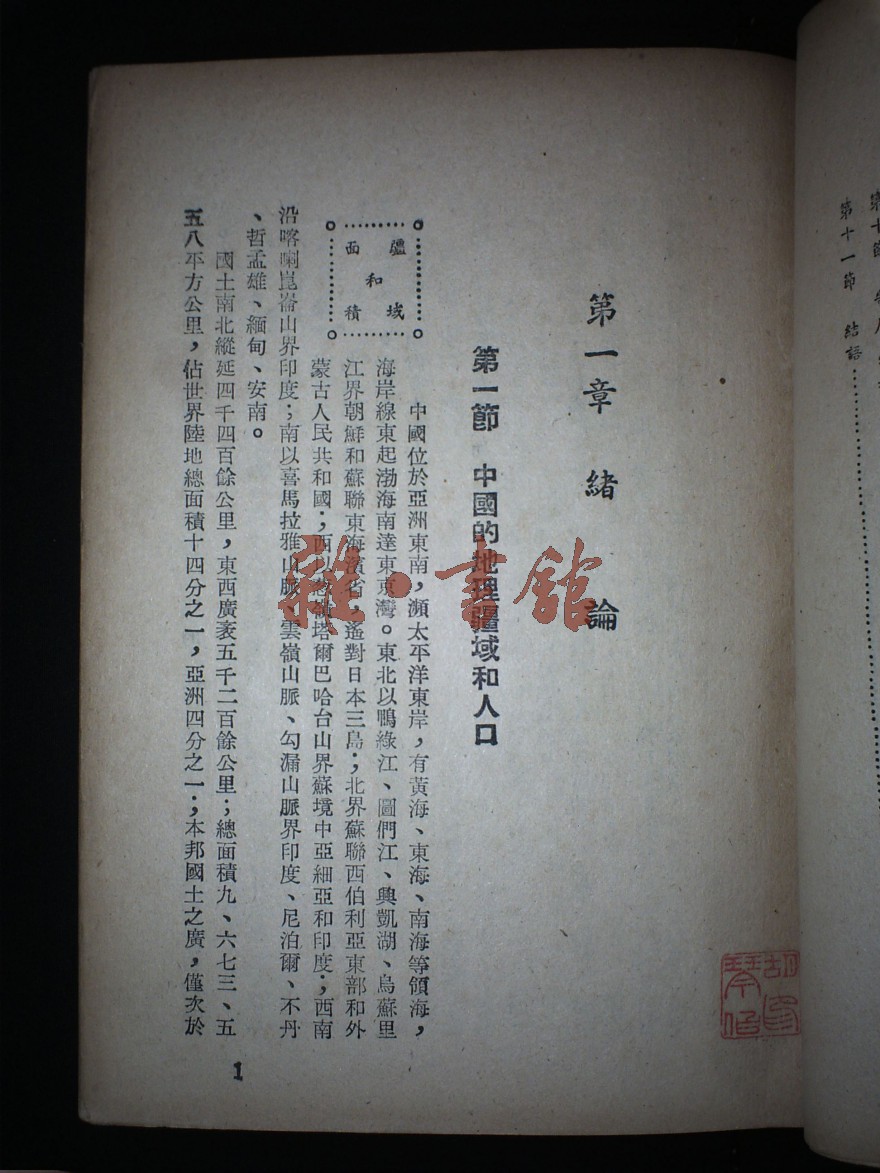 第十一節 結語
第一章 緒論
第一節 中國的地理疆域和人口
疆域
和
面積
中國位於亞洲東南，瀕太平洋東岸，有黃海、東海、南海等領海，
海岸線東起渤海南達東京灣。東北以鴨綠江、圖們江、興凱湖、烏蘇里
江界朝鮮和蘇聯東海濱省，遙對日本三島；北界蘇聯西伯利亞東部和外
蒙古人民共和國；西以葱嶺塔爾巴哈台山界蘇境中亞細亞和印度；西南
沿喀喇崑崙山界印度；南以喜馬拉雅山脈、雲嶺山脈、勾漏山脈界印度、尼泊爾、不丹
、哲孟雄、緬甸、安南。
國土南北縱延四千四百餘公里，東西廣袤五千二百餘公里；總面積九、六七三、五
五八平方公里，佔世界陸地總面積十四分之一，亞洲四分之一；本邦國土之廣，僅次於
1
雜·書館